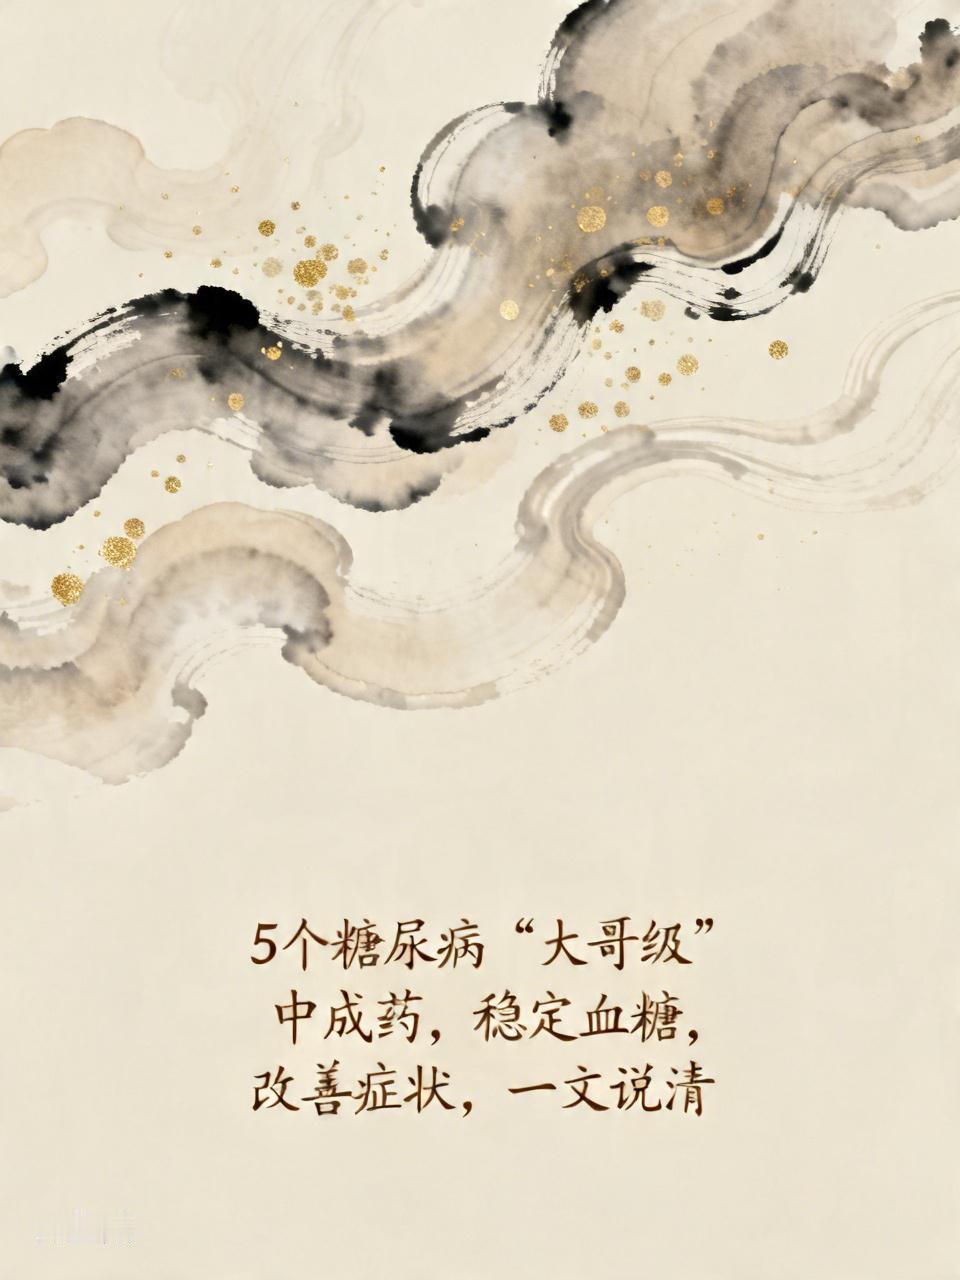 5个糖尿病“大哥级”
中成药，稳定血糖，
改善症状，一文说清